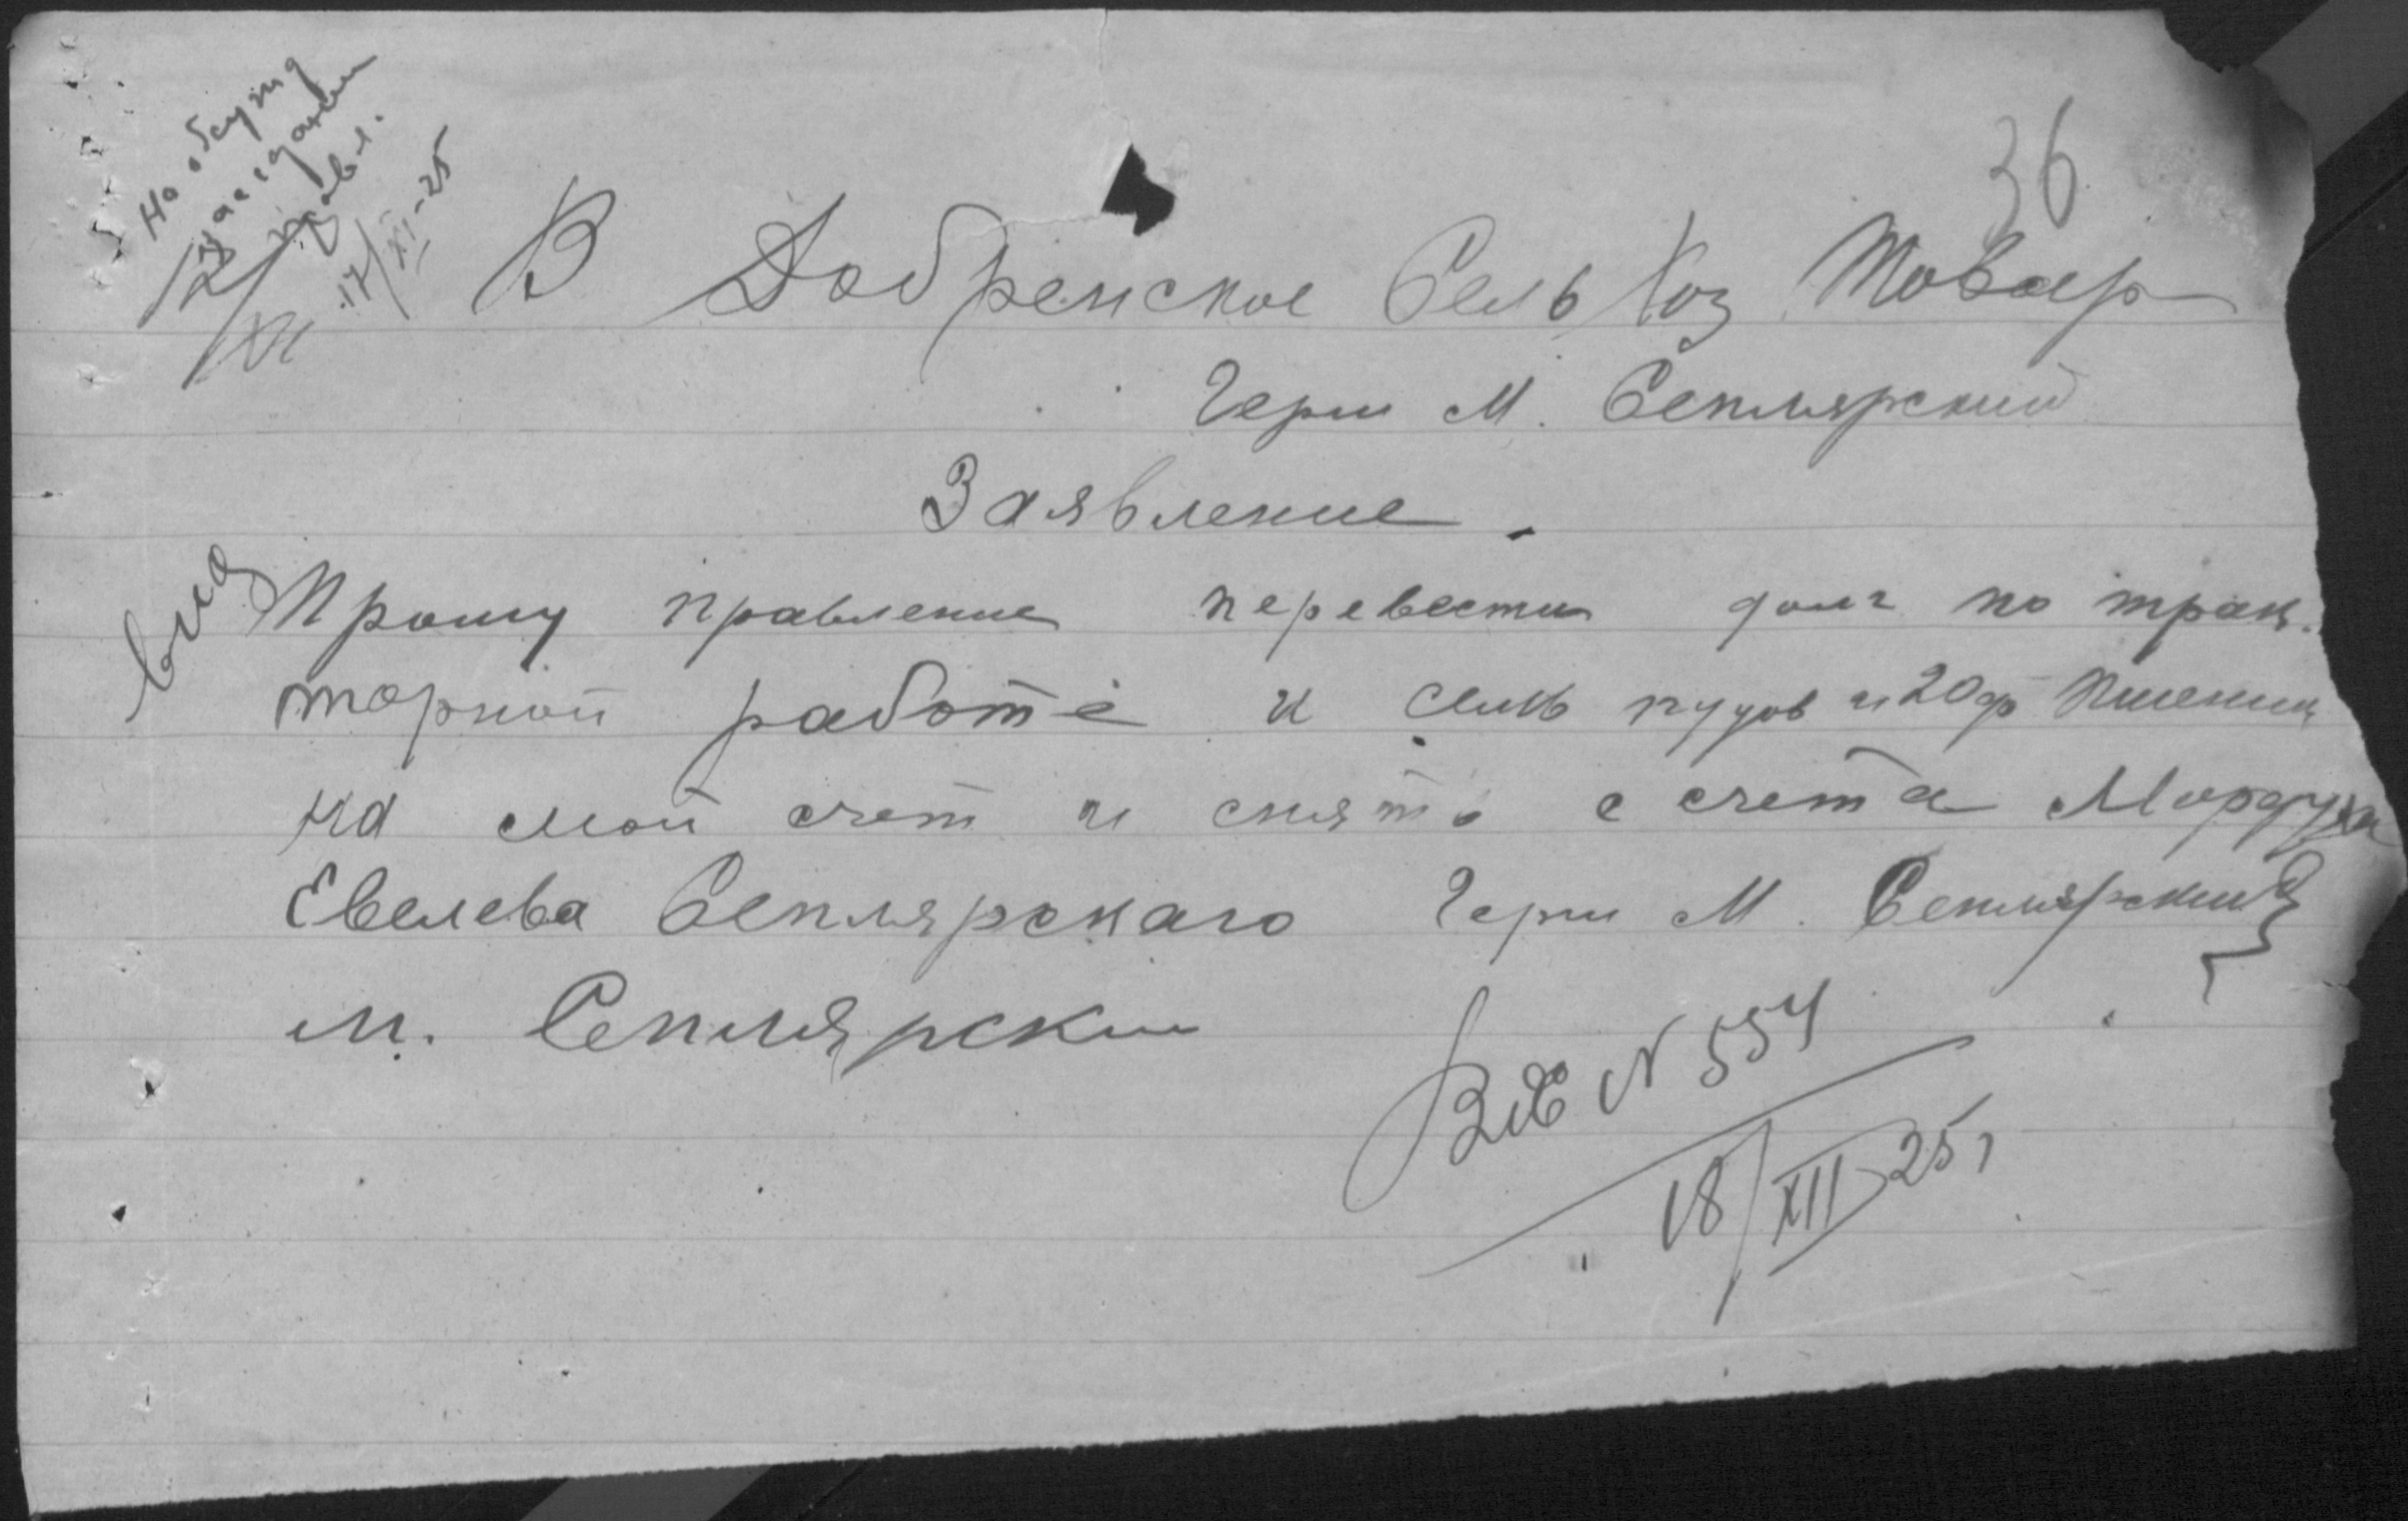 На обсужд
заседании
правл.
17/XI-25
36
В Добренское Сель Хоз Товар
Герш М. Сеплярский
Заявление.
Прошу правление перевести долг по трак.
торной работе и семь пудов и 20ф пшениц
на мой счет и снять с счета Мордуха
Евелева Сеплярскаго Герш М. Сеплярский
м. Сеплярски
Вх № 554
18/XII 25г